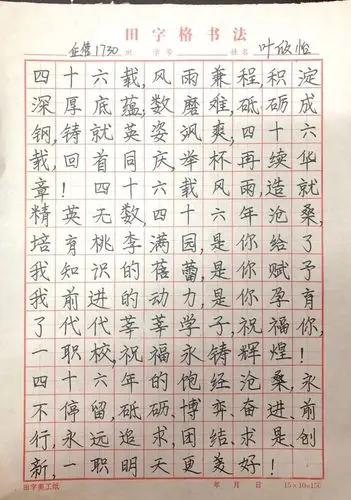 田字格书法
企管1730 班 学号 姓名 叶欣怡
四十六载,风雨兼程,积淀
深厚底蕴;数磨难,砥砺成
钢,铸就英姿飒爽,四十六
载,回首同庆,举杯再续华
章! 四十六载风雨,造就
精英无数,四十六年沧桑,
培育桃李满园,是你给了
我知识的蓓蕾,是你赋予
我前进的动力,是你孕育
了代代莘莘学子,祝福你,
一职校,祝福永铸辉煌!
四十六年的饱经沧桑,永
不停留,砥砺、博弈、奋进、前
行,永远追求,团结、求是、创
新,一职明天更美好!
田字美工纸 年 月 日 15×10=150